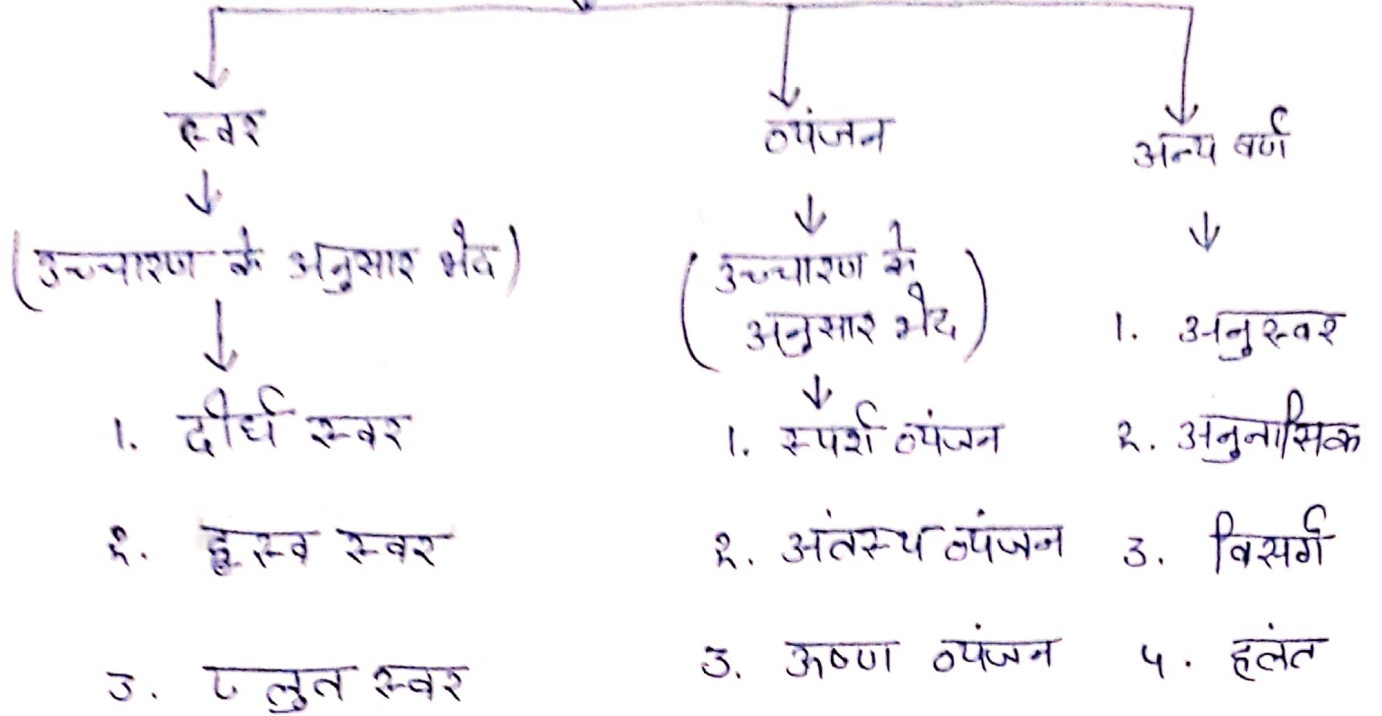 स्वर
(उच्चारण के अनुसार भेद)
1. दीर्घ स्वर
2. ह्रस्व स्वर
3. प्लुत स्वर
व्यंजन
(उच्चारण के
अनुसार भेद)
1. स्पर्श व्यंजन
2. अंतस्थ व्यंजन
3. ऊष्ण व्यंजन
अन्य वर्ण
1. अनुस्वर
2. अनुनासिक
3. विसर्ग
४. हलंत